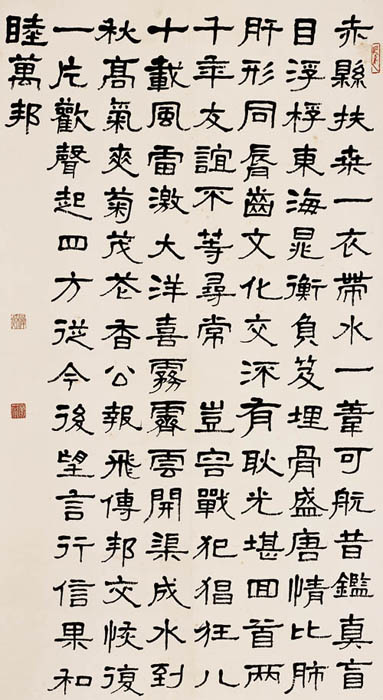 赤縣扶桒一衣帶水一葦可航昔鑑真盲
目浮桴東海晁衡負笈埋骨盛唐情比肺
肝形同脣齒文化交流有耿光堪回首兩
千年友誼不等尋常 豈容戰犯猖狂八
十載風雷激大洋喜霧霽雲開渠成水到
秋高氣爽菊茂花香公報飛傳邦交恢復
一片歡聲起四方從今後望言行信果和
睦萬邦